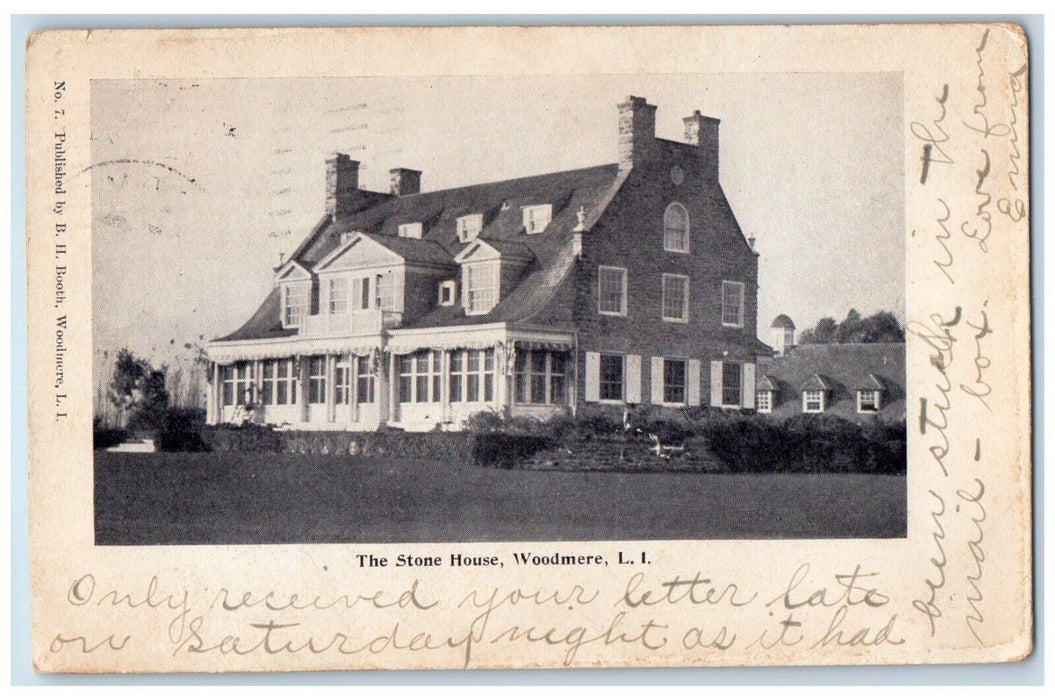 No. 7. Published by B. H. Booth, Woodmere, L. I.
The Stone House, Woodmere, L. I.
Only received your letter late
on Saturday night as it had
been stuck in the
mail-box. Love from
Enid